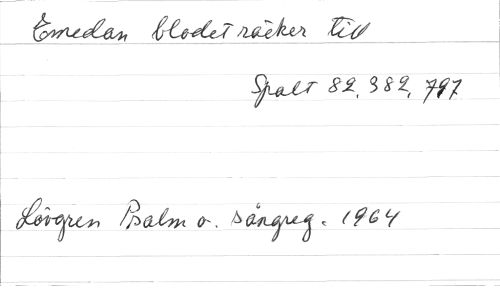 Emedan blodet räcker till
Spalt 82, 382, 797
Lövgren Psalm o. sångreg. 1964